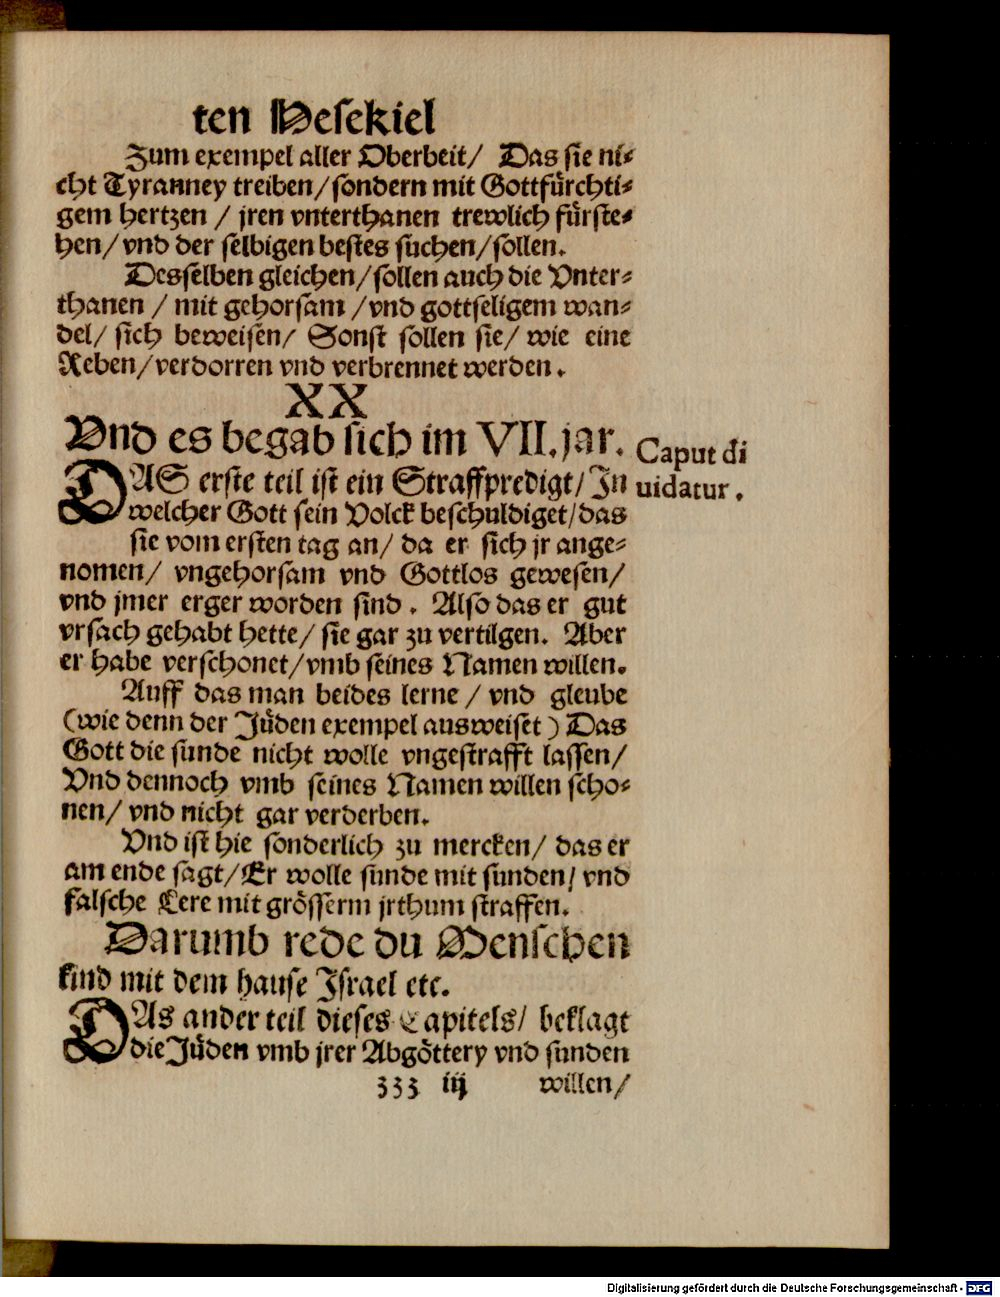 ten Hesekiel
Zum exempel aller Oberheit/ Das sie ni⸗
cht Tyranney treiben/sondern mit Gottfürchti⸗
gem hertzen / jren vnterthanen trewlich fürste⸗
hen/vnd der selbigen bestes suchen/sollen.
Desselben gleichen/sollen auch die Vnter⸗
thanen / mit gehorsam /vnd gottseligem wan⸗
del/ sich beweisen/ Sonst sollen sie/ wie eine
Reben/verdorren vnd verbrennet werden.
XX
Vnd es begab sich im VII.jar.
Caput di
uidatur.
DAS erste teil ist ein Straffpredigt/In
welcher Gott sein Volck beschuldiget/das
sie vom ersten tag an/ da er sich jr ange⸗
nomen/ vngehorsam vnd Gottlos gewesen/
vnd jmer erger worden sind. Also das er gut
vrsach gehabt hette/ sie gar zu vertilgen. Aber
er habe verschonet/vmb seines Namen willen.
Auff das man beides lerne / vnd gleube
(wie denn der Jüden exempel ausweiset) Das
Gott die sunde nicht wolle vngestrafft lassen/
Vnd dennoch vmb seines Namen willen scho⸗
nen/ vnd nicht gar verderben.
Vnd ist hie sonderlich zu mercken/ das er
am ende sagt/Er wolle sunde mit sunden/ vnd
falsche Lere mit grösserm jrthum straffen.
Darumb rede du Menschen
kind mit dem hause Jsrael etc.
DAs ander teil dieses Capitels/ beklagt
die Jüden vmb jrer Abgöttery vnd sunden
zzz iij willen/
Digitalisierung gefördert durch die Deutsche Forschungsgemeinschaft - DFG